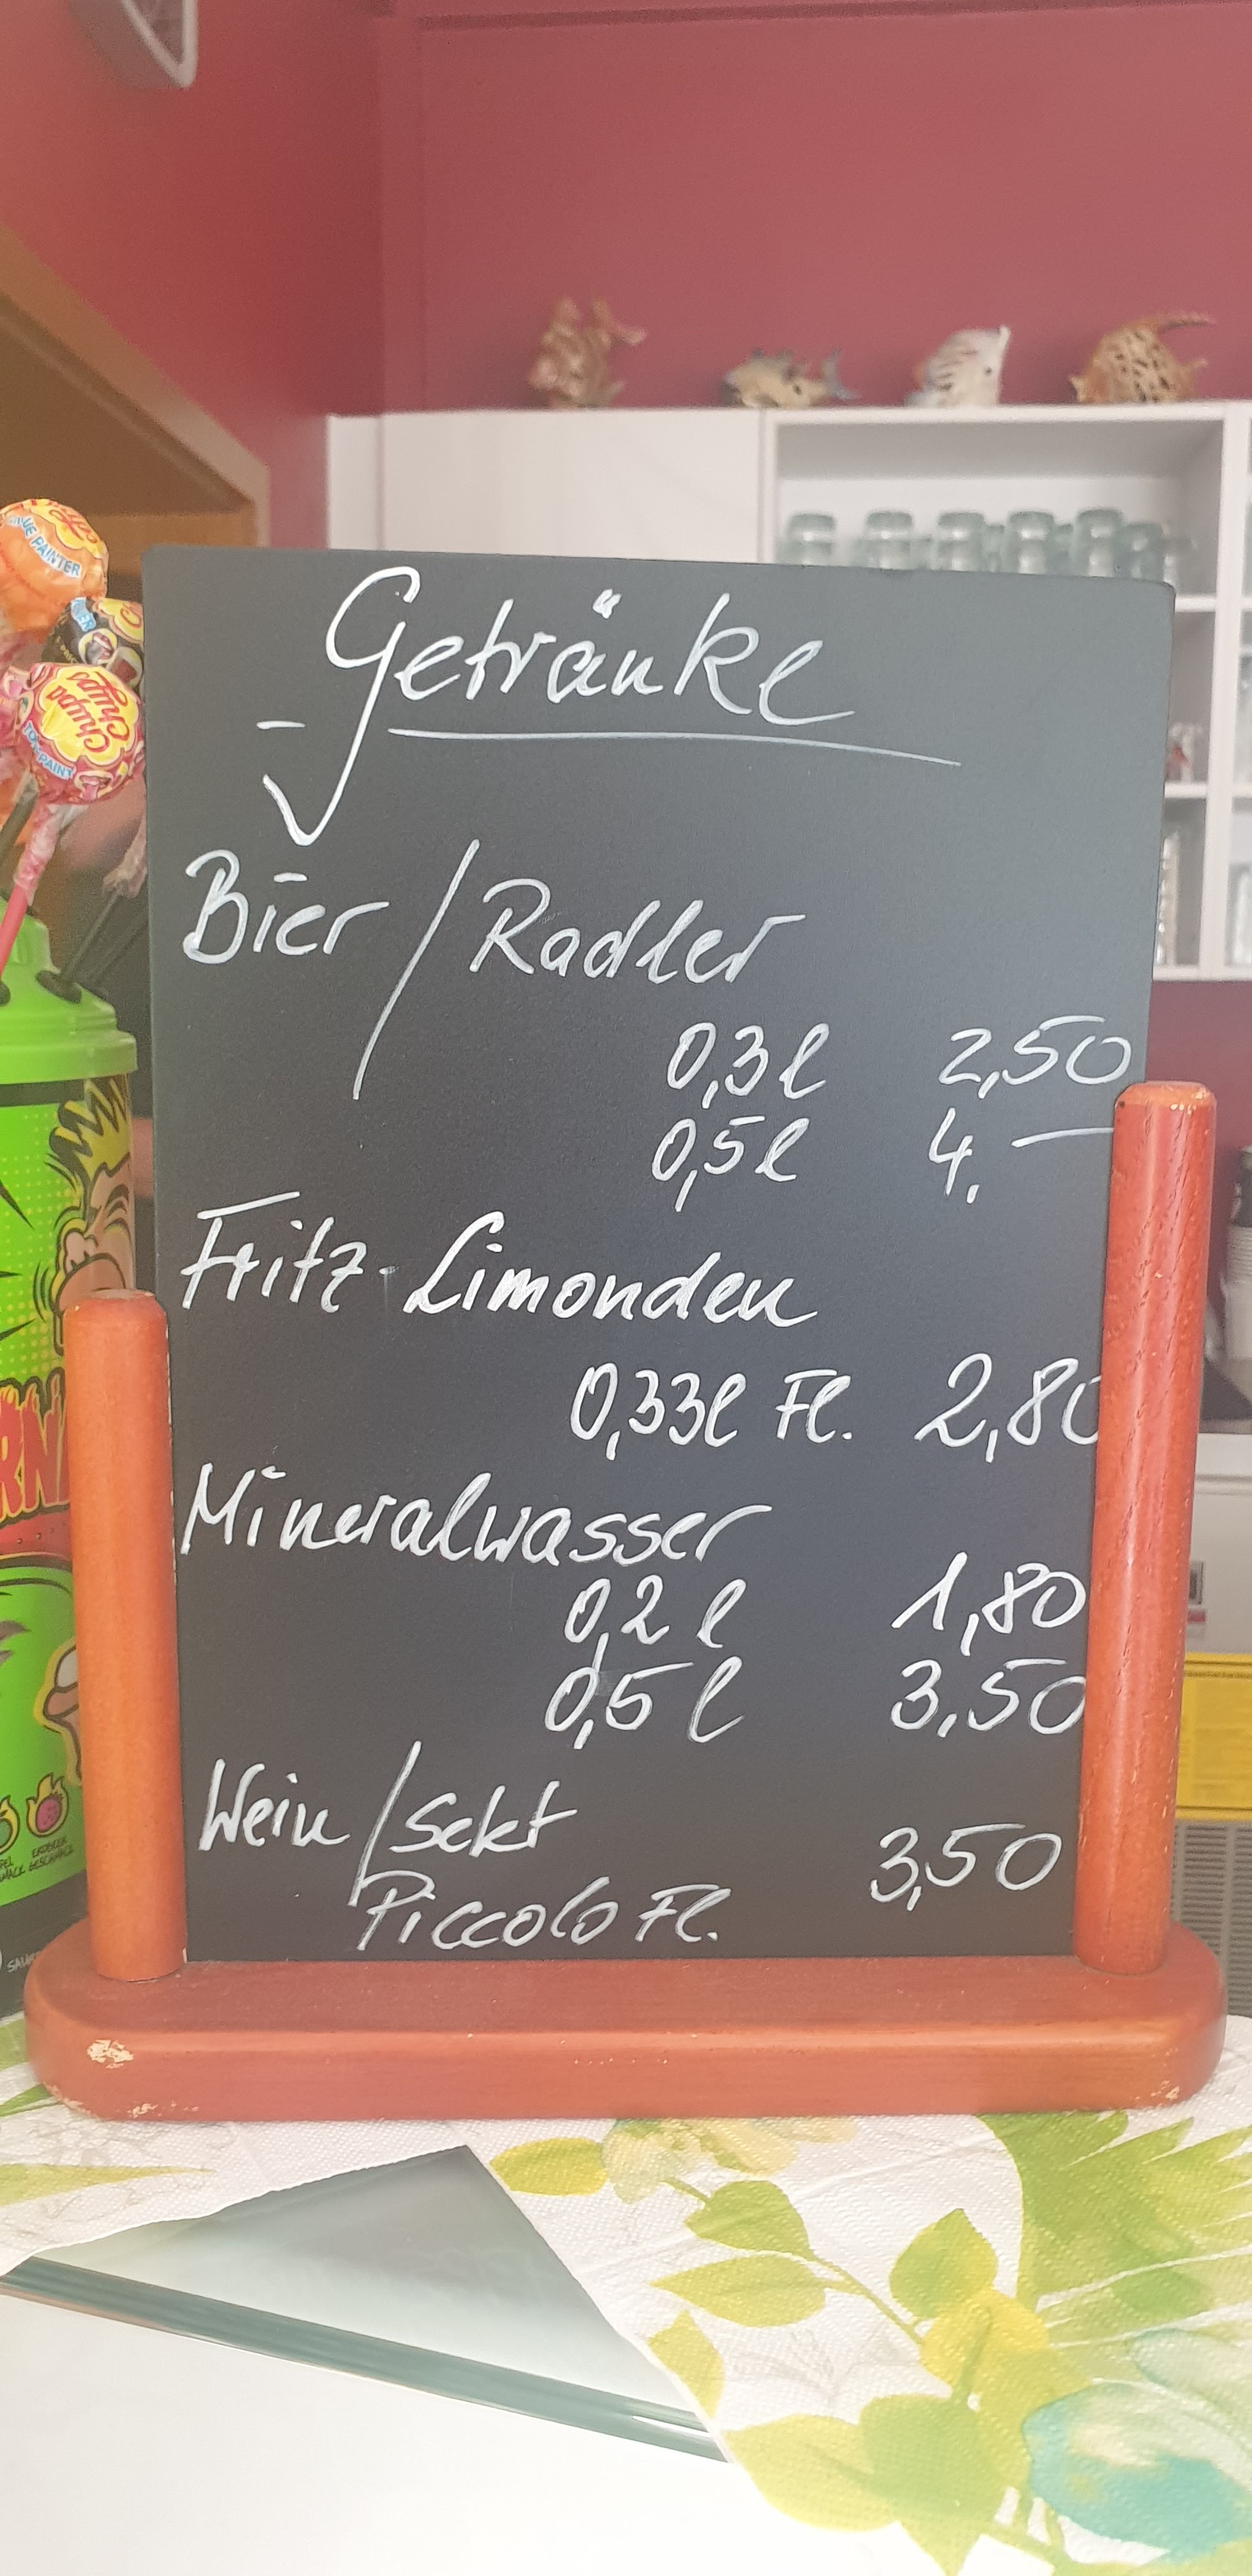 Getränke
Bier / Radler
0,3l 2,50
0,5l 4.—
Fritz-Limonden
0,33l Fl. 2,80
Mineralwasser
0,2 l 1,80
0,5 l 3,50
Wein / Sekt 3,50
Piccolo Fl.
PAINTER
Chupa
Chups
ERDBEER
GESCHMACK